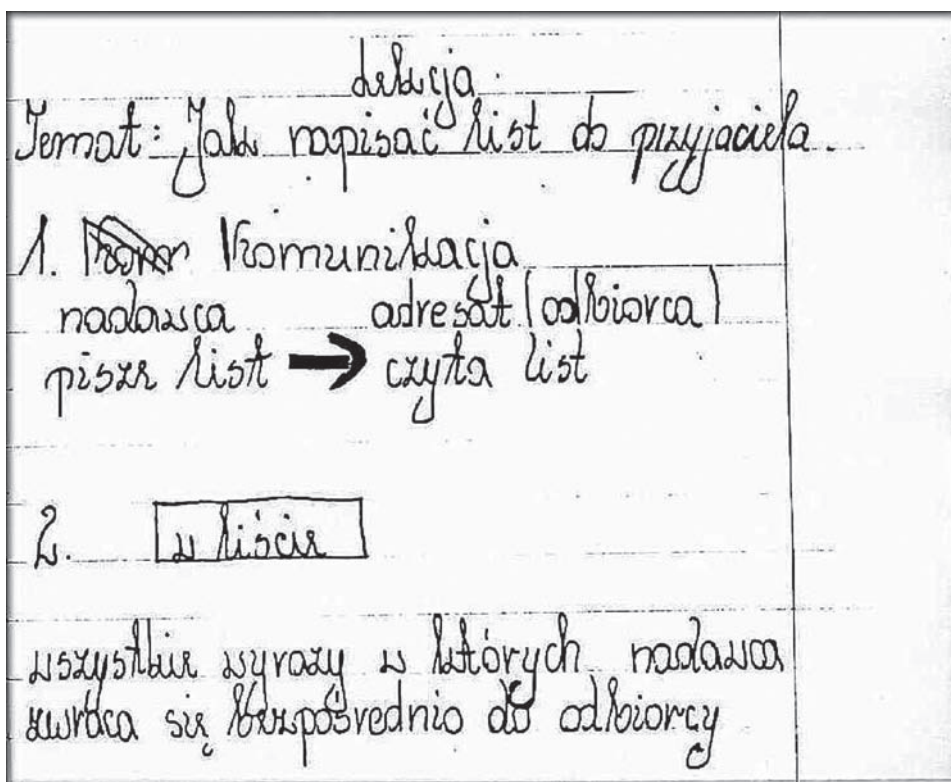 Lekcja
Temat: Jak napisać list do przyjaciela.
1. Kom Komunikacja
nadawca adresat (odbiorca)
pisze list → czyta list
2. w liście
wszystkie wyrazy w których nadawca
zwraca się bezpośrednio do odbiorcy